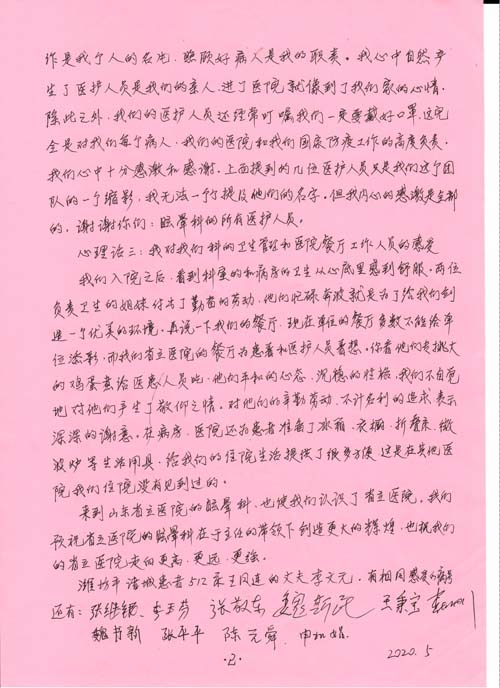 作是我个人的名片，照顾好病人是我的职责。我心中自然产
生了医护人员是我们的亲人，进了医院就像到了我们家的心情。
除此之外，我们的医护人员还经常叮嘱我们一定要戴好口罩，这完
全是对我们每个病人，我们的医院和我们国家防疫工作的高度负责。
我们心中十分感激和感谢。上面提到的几位医护人员只是我们这个团
队的一个缩影，我无法一个个提及他们的名字。但我内心的感激是全部
的，谢谢你们：眩晕科的所有医护人员。
心理话三：我对我们科的卫生管理和医院餐厅工作人员的感发
我们入院之后，看到科室的和病房的卫生从心底里感到舒服。两位
负责卫生的姐妹付出了勤奋的劳动，他们忙碌奔波就是为了给我们创
造一个优美的环境。再说一下我们的餐厅，现在单位的餐厅多数不能给单
位添彩，而我们省立医院的餐厅为患者和医护人员着想。你看他们专挑大
的鸡蛋煮给医患人员吃，他们平和的心态，沉稳的性格，我们不自觉
地对他们产生了敬仰之情。对他们的辛勤劳动，不计名利的追求表示
深深的谢意。在病房，医院还为患者准备了冰箱，衣橱，折叠床，微
波炉等生活用具，给我们的住院生活提供了很多方便，这是在其他医
院我们住院没有见到过的。
来到山东省立医院的眩晕科，也使我们认识了省立医院。我们
预祝省立医院的眩晕科在于主任的带领下创造更大的辉煌，也祝我们
的省立医院走的更高，更远，更强。
潍坊市诸城患者512床王风连的丈夫李文元。有相同感发的病号
还有：张继锁、李玉芬 张敬东 魏新民 王秉宝
魏书新 张平平 陈元舜
·2·
2020.5